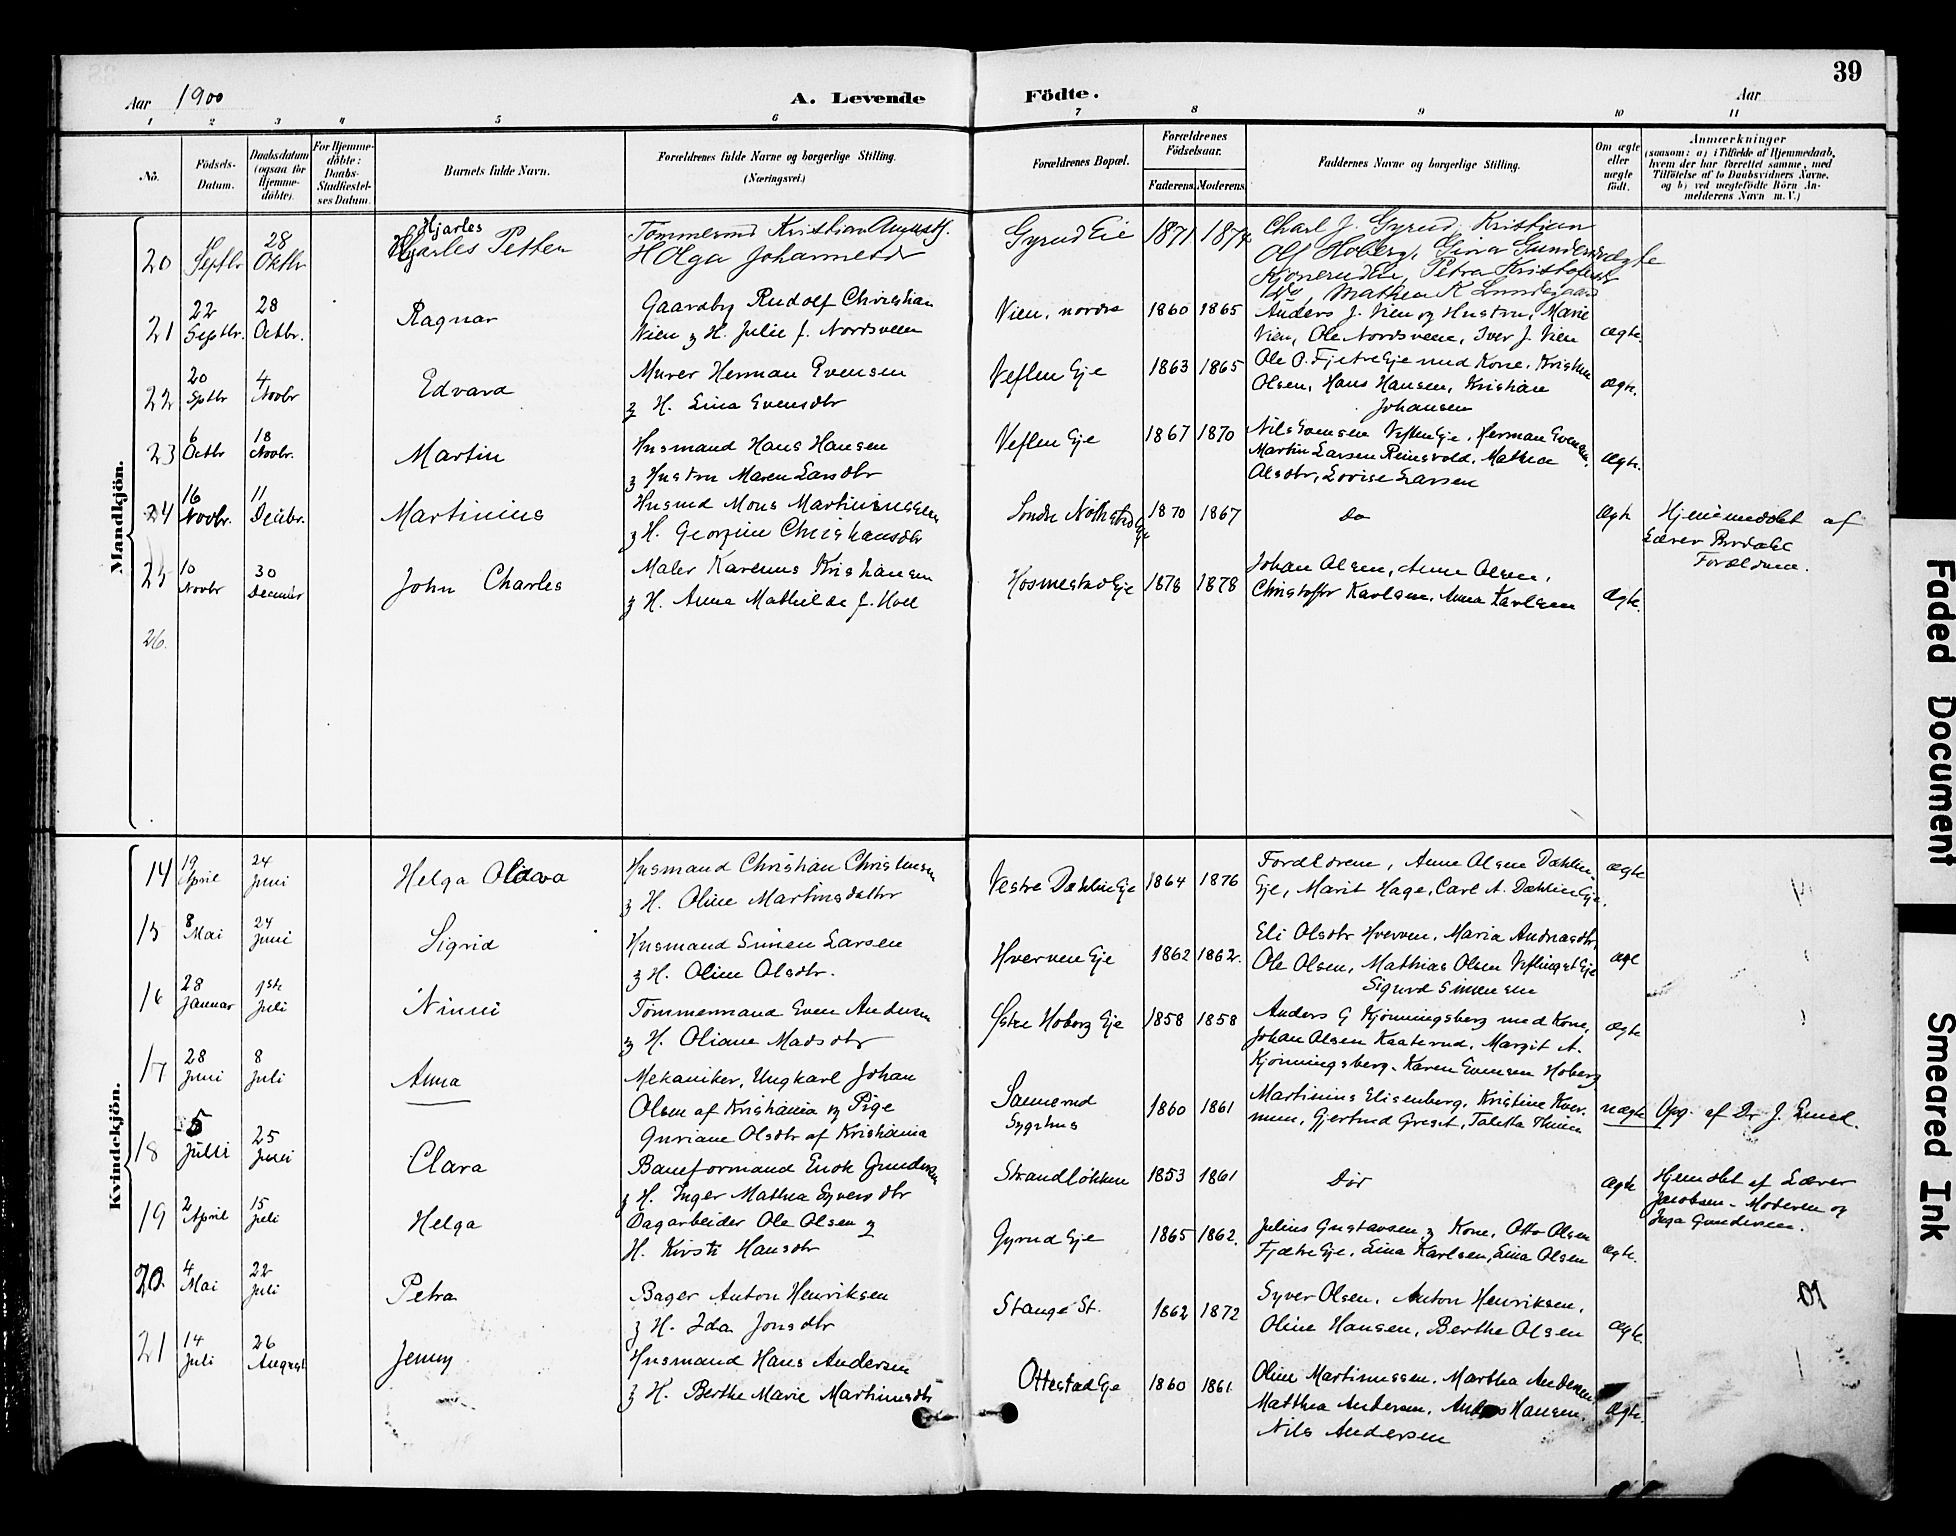 39
Aar 1900
A. Levende Födte.
Aar
1 2 3 4 5 6 7 8 9 10 11
No.
Födsels-Datum.
Daabsdatum (ogsaa for Hjemme-döbte).
For Hjemme-döbte: Daabs-Stadfæstel-ses Datum.
Barnets fulde Navn.
Forældrenes fulde Navne og borgerlige Stilling.
(Næringsvei.)
Forældrenes Bopæl.
Forældrenes Födselsaar.
Faderens. Moderens.
Faddernes Navne og borgerlige Stilling.
Om ægte eller uægte födt.
Anmærkninger
(saasom: a) i Tilfælde af Hjemmedaab, hvem der har forrettet samme, med Tilföielse af to Daabsvidners Navne, og b) ved uægtefödte Börn An-melderens Navn m. V.)
Mandkjön.
20 Septbr 28 Oktbr Hjarles
Hjarles Petter
Tømmermd Kristian August
H Olga Johannesdr
Gyrud Eie 1871 1874
Charl J. Gyrud, Kristian
Olf Hoberg, Gina Gunders
Petra
Mathea K Lundgaard
ægte
21 22 Septbr. 28 Octbr. Ragnar
Gaardbr Rudolf Christian
Vien & H. Julie f. Nordsveen
Vien, nordre 1860 1865
Anders J. Vien og Hustru, Marie
Vien, Ole Nordsveen, Iver J. Vien
ægte.
22 20 Sptbr 4 Novbr Edvard
Murer Herman Evensen
& H. Lina Evensdtr
Veflen Eje 1863 1865
Ole O. Fjetre Eje med Kone, Kristian
Olsen, Hans Hansen, Kristian
Johansen
ægte.
23 6 Octbr 18 Novbr. Martin
Husmand Hans Hansen
& Hustru Maren Larsdtr
Veflen Eje 1867 1870
Nils Evensen Veflen Eje, Herman Evensen,
Martin Larsen Reinsvold, Mathea
Olsdtr, Lovise Larsen
ægte.
24 16 Novbr. 11 Decbr. Martinius
Husmd Mons Martiniussen
& H. Georgine Christiansdtr
Søndre 1870 1867
Do
ægte
Hjemmedøbt af
Lærer
Forældrene.
25 10 Novbr 30 December John Charles
Maler Karenus Kristiansen
& H. Anna Mathilde f. Hoel
Hosmestad Eje 1878 1878
Johan Olsen, Anne Olsen,
Christoffer Karlsen, Anna Karlsen
ægte.
26.
Kvindekjön.
14 19 April 24 Juni Helga Oldava
Husmand Christian Christensen
& H. Oline Martinsdatter
Vestre Dæhlin Eje 1864 1876
Forældrene, Anne Olsen Dæhlin-
Eje, Marit Hage, Carl A. Dæhlin Eje.
ægte
15 8 Mai 24 Juni Sigrid
Husmand Simen Larsen
& H. Oline Olsdtr.
Hverven Eje 1862 1862.
Eli Olsdtr Hverven, Maria Andreasdtr,
Ole Olsen, Mathias Olsen
Sigurd Simensen
ægte
16 28 Januar 1ste Juli Ninni
Tømmermand Even Andersen
& H. Oliane Madsdtr
Østre Hoberg Eje 1858 1858
Anders G Kjønningsberg med Kone,
Johan Olsen Kaaterud, Margit A.
Kjønningsberg. Karen Evensen Hoberg
ægte
17 28 Juni 8 Juli Anna
Mekaniker, Ungkarl Johan
Olsen af Kristiania og Pige
Guriane Olsdtr af Kristiania
Sannerud
Sygehus
1860 1861
Martinius Elisenberg, Kristine
Gjertrud
uægte
Opg. af Dr J.
18 5 Juli 25 Juni Clara
Baneformand Enok Gundersen
& H. Inger Mathea Syversdtr
Strandløkken 1853 1861
Do
ægte
Hjemdøbt af Lærer
Jacobsen - Moderen og
Inga Gundersen.
19 2 April 15 Juli Helga
Dagarbeider Ole Olsen &
H. Kirsti Hansdtr
Gyrud Eje 1865 1862.
Julius Gustavsen & Kone, Otto Olsen
Fjætre Eje, Lina Karlsen, Lina Olsen
ægte.
20. 4 Mai 22 Juli Petra
Bager Anton Henriksen
& H. Ida Jonsdtr
Stange St. 1862 1872
Syver Olsen, Anton Henriksen,
Oline Hansen, Berthe Olsen
ægte.
21 14 Juli 26 August Jenny
Husmand Hans Andersen
& H. Berthe Marie Martinusdtr
Ottestad Eje 1860 1861
Oline Martinussen, Martha Andersen
Matthea Andersen, Anders Hansen,
Nils Andersen
ægte.
Faded Document
Smeared Ink